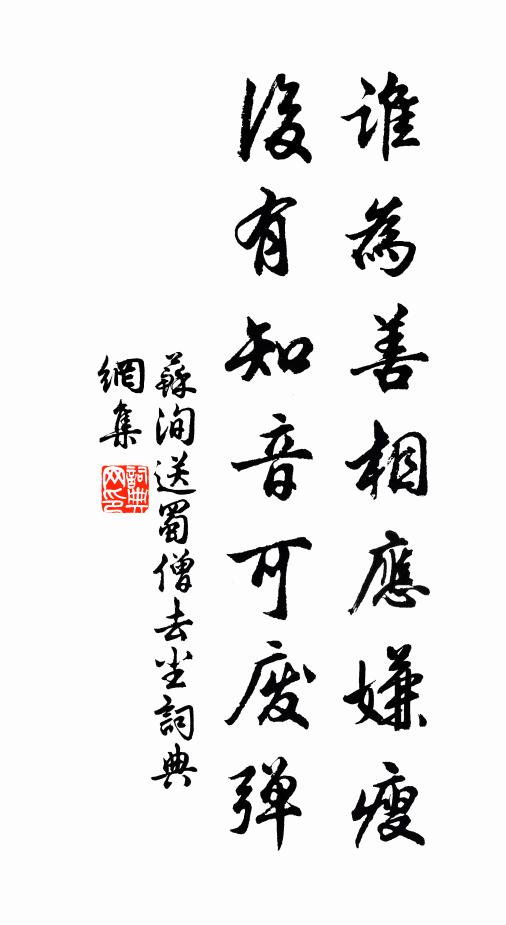 誰為善相應嫌瘦
後有知音可廢彈
蘇洵送蜀僧去尘詞典
網集
詞典
网印